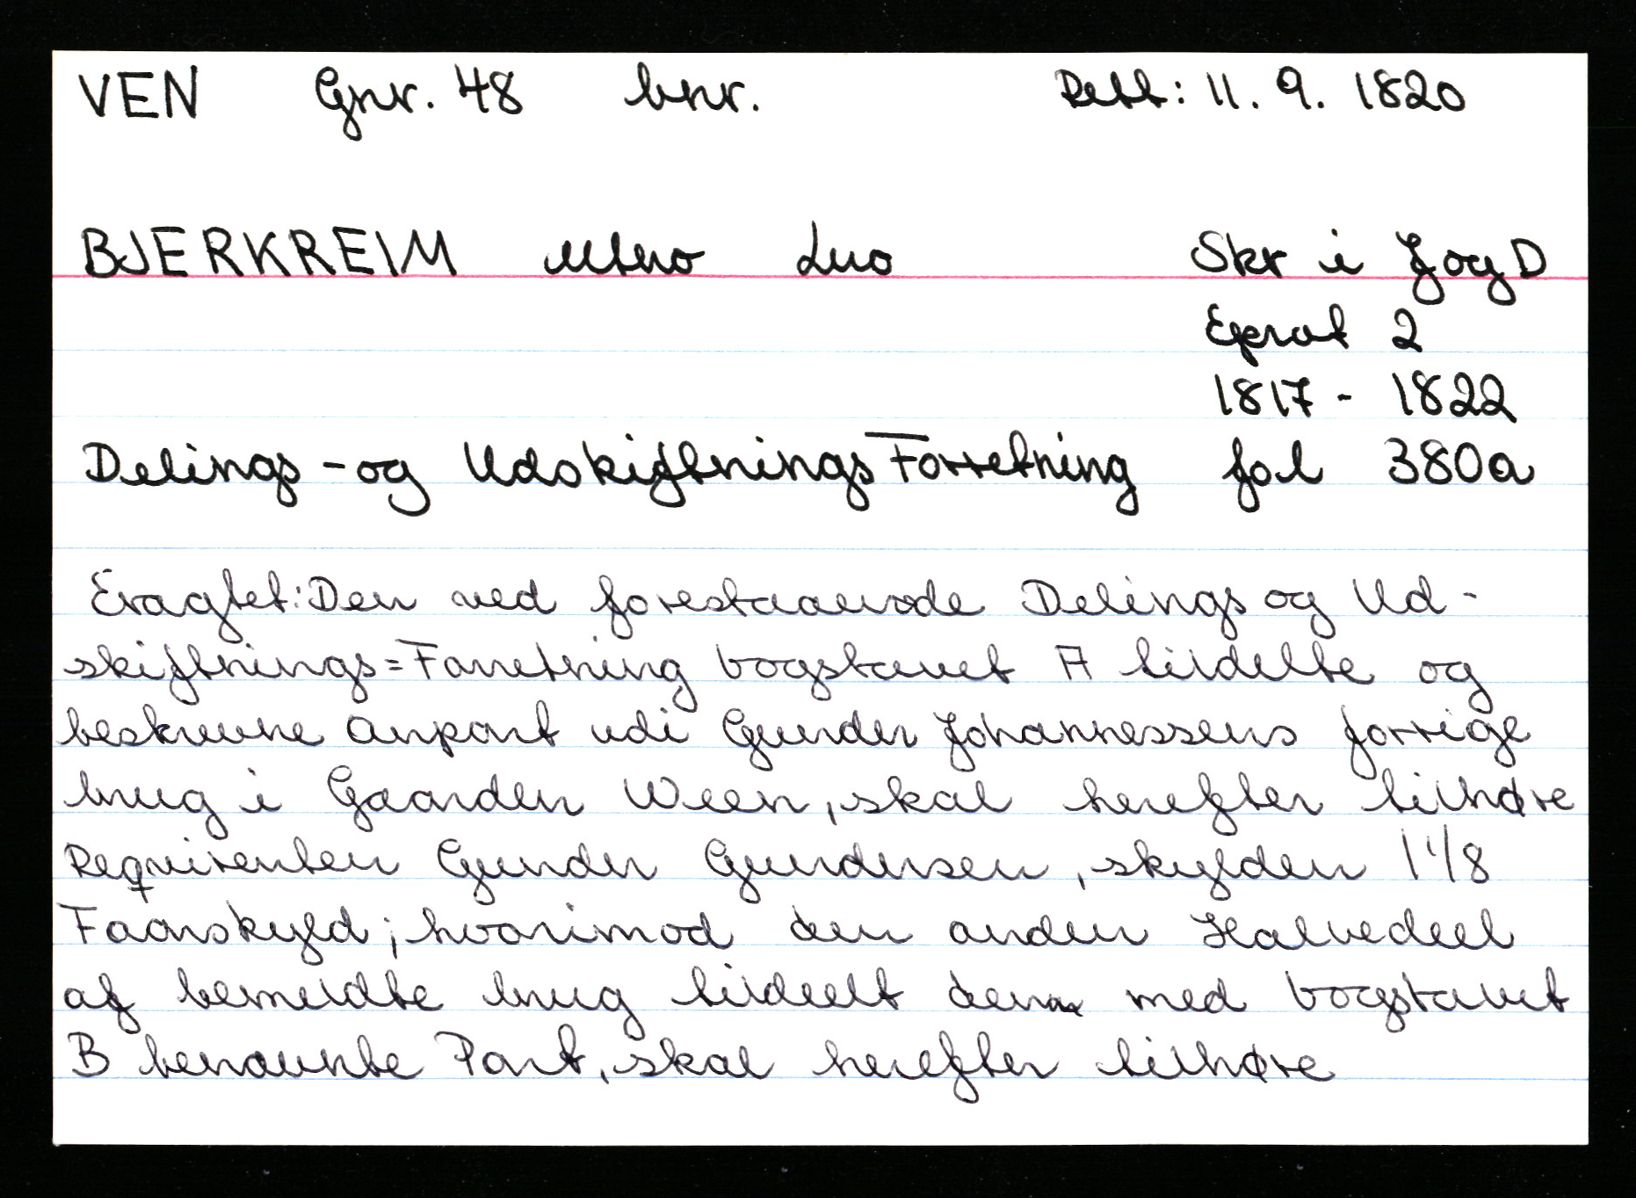 VEN Gnr. 48 bnr. Dett: 11. 9. 1820
BJERKREIM Mtno Lno Skr i J og D
Eprot 2
1817 - 1822
Delings - og Udskiftnings Forretning fol 380a
Eragtet: Den ved forestaaende Delings og Ud-
skiftnings=Forretning bogstavet A tildelte og
beskrevne Anpart udi Gunder Johannessens forrige
brug i Gaarden Ween, skal herefter tilhøre
Requirenten Gunder Gundersen, skylden 1 1/8
Faarskyld; hvorimod den anden Halvedeel
af bemeldte brug tildeelt den med bogstavet
B benævnte Part, skal herefter tilhøre